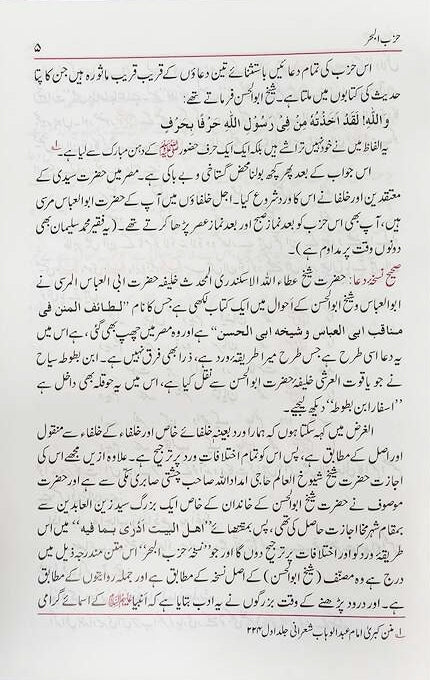 حزب البحر ۵
اس حزب کی تمام دعائیں باستثنائے تین دعاؤں کے قریب قریب ماثورہ ہیں جن کا پتا
حدیث کی کتابوں میں ملتا ہے۔ شیخ ابوالحسن فرماتے تھے:
وَاللهِ! لَقَدْ اَخَذْتُهُ مِنْ فِيْ رَسُوْلِ اللهِ حَرْفًا بِحَرْفٍ
یہ الفاظ میں نے خود نہیں تراشے ہیں بلکہ ایک ایک حرف حضور ﷺ کے دہن مبارک سے لیا ہے۔ ۱؎
اس جواب کے بعد پھر کچھ بولنا محض گستاخی و بے باکی ہے۔ مصر میں حضرت سیدی کے
معتقدین اور خلفا نے اس کا ورد شروع کیا۔ اجل خلفاؤں میں آپ کے حضرت ابوالعباس مرسی
ہیں، آپ بھی اس حزب کو بعد نماز صبح اور بعد نماز عصر پڑھا کرتے تھے۔ (یہ فقیر محمد سلیمان بھی
دونوں وقت پر مداوم ہے)۔
صحیح نسخہ دعا: حضرت شیخ عطاء اللہ الاسکندری المحدث خلیفہ حضرت ابی العباس المرسی نے
ابوالعباس و شیخ ابوالحسن کے احوال میں ایک کتاب لکھی ہے جس کا نام ”لطائف المنن فی
مناقب ابی العباس وشیخه ابی الحسن“ ہے اور وہ مصر میں چھپ بھی گئی ہے اس میں
یہ دعا اسی طرح ہے جس طرح میرا طریقہ ورد ہے، ذرا بھی فرق نہیں ہے۔ ابن بطوطہ سیاح
نے جو یاقوت العرشی خلیفۂ حضرت ابوالحسن سے نقل کیا ہے، اس میں یہ حوقلہ بھی داخل ہے
”اسفار ابن بطوطہ“ دیکھ لیجیے۔
الغرض میں کہہ سکتا ہوں کہ ہمارا ورد بعینہ خلفائے خاص اور خلفاء کے خلفاء سے منقول
اور اصل کے مطابق ہے، پس اس کو تمام اختلافات ورد پر ترجیح ہے۔ علاوہ ازیں مجھے اس کی
اجازت حضرت شیخ شیوخ العالم حاجی امداد اللہ صاحب چشتی صابری مکی سے ہے اور حضرت
موصوف نے حضرت شیخ ابوالحسن کے خاندان کے خاص ایک بزرگ سید زین العابدین سے
بمقام شہر مخا اجازت حاصل کی تھی، پس بمقتضائے ”اھل البیت اَدْرٰی بما فیه“ میں اس
طریقۂ ورد کو اور اختلافات پر ترجیح دوں گا اور جو ”نسخۂ حزب البحر“ اس متن مندرجہ ذیل میں
درج ہے وہ مصنّف (شیخ ابوالحسن) کے اصل نسخہ کے مطابق ہے اور جملہ روایتوں کے مطابق
ہے۔ اور درود پڑھنے کے وقت بزرگوں نے یہ ادب بتایا ہے کہ انبیا علیہم السلام کے اسمائے گرامی
۱؎ منن کبریٰ امام عبدالوہاب شعرانی جلد اول ۲۲۴